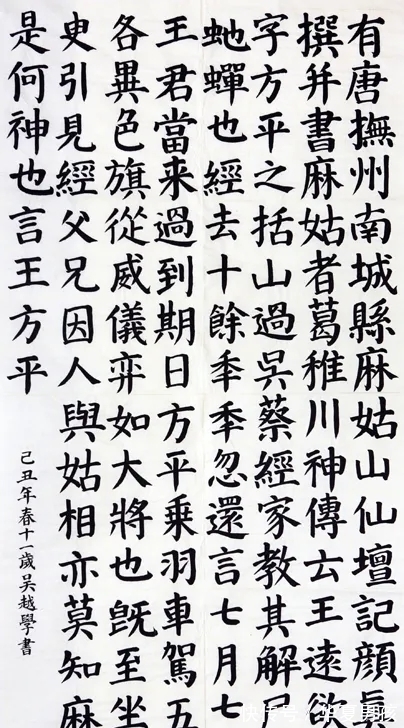 有唐撫州南城縣麻姑山仙壇記顏眞
撰并書麻姑者葛稚川神傳云王遠欲
字方平之括山過吳蔡經家教其解尸
虵蟬也經去十餘秊秊忽還言七月七
王君當来過到期日方平乗羽車駕五
各異色旗從威儀弈如大將也旣至坐
臾引見經父兄因人與姑相亦莫知麻
是何神也言王方平
己丑年春十一歲吳越學書